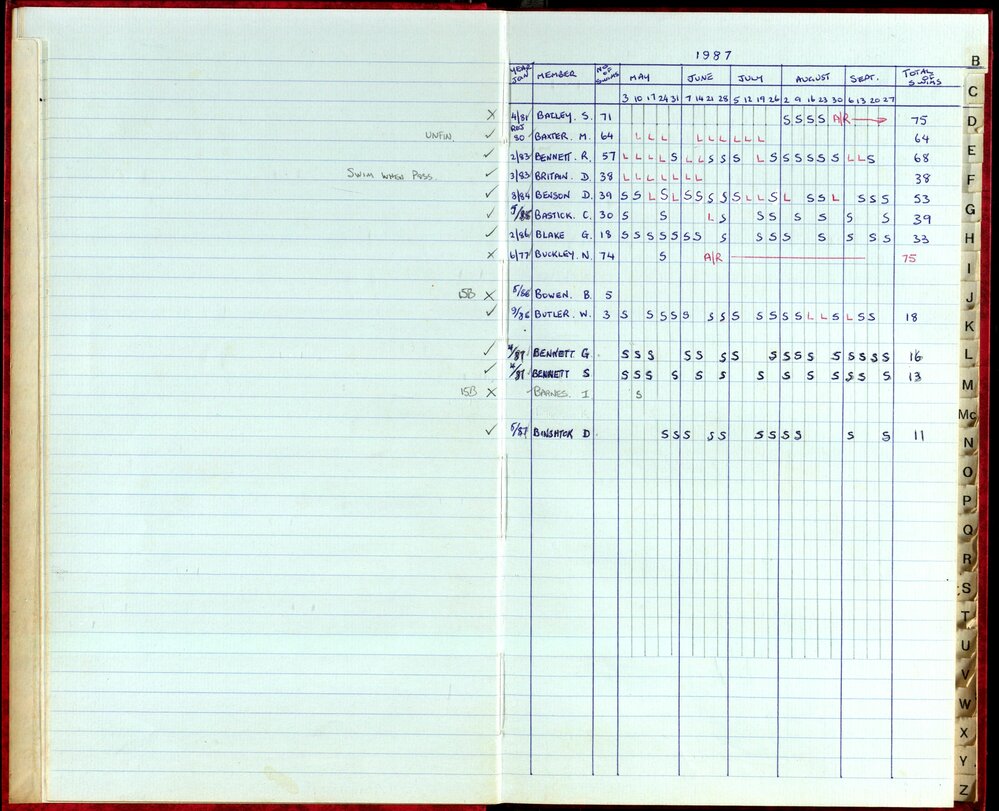 1987
YEAR JOIN MEMBER NO OF SWIMS MAY JUNE JULY AUGUST SEPT. TOTAL OF SWIMS
3 10 17 24 31 7 14 21 28 5 12 19 26 2 9 16 23 30 6 13 20 27
X 4/81 BATLEY. S. 71 S S S S A/R 75
UNFIN ✓ 80 BAXTER. M. 64 L L L L L L L L L L 64
✓ 2/83 BENNETT. R. 57 L L L L S L L S S S L S S S S S S L L S 68
SWIM WHEN POSS. ✓ 3/83 BRITAIN. D. 38 L L L L L L L 38
✓ 3/84 BENSON D. 39 S S L S L S S S S S L L S L S S L S S S 53
✓ 5/85 BASTICK. C. 30 S S L S S S S S S S 39
✓ 2/86 BLAKE G. 18 S S S S S S S S S S S S S S S 33
X 6/77 BUCKLEY. N. 74 S A/R 75
ISB X 5/86 BOWEN. B. 5
✓ 9/86 BUTLER. W. 3 S S S S S S S S S S S S L L S L S S 18
✓ 4/87 BENNETT G. S S S S S S S S S S S S S S S S 16
✓ 4/87 BENNETT S S S S S S S S S S S S S S 13
ISB X BARNES. I S
✓ 5/87 BINSHTOK D. S S S S S S S S S S S 11
B
C
D
E
F
G
H
I
J
K
L
M
Mc
N
O
P
Q
R
S
T
U
V
W
X
Y
Z